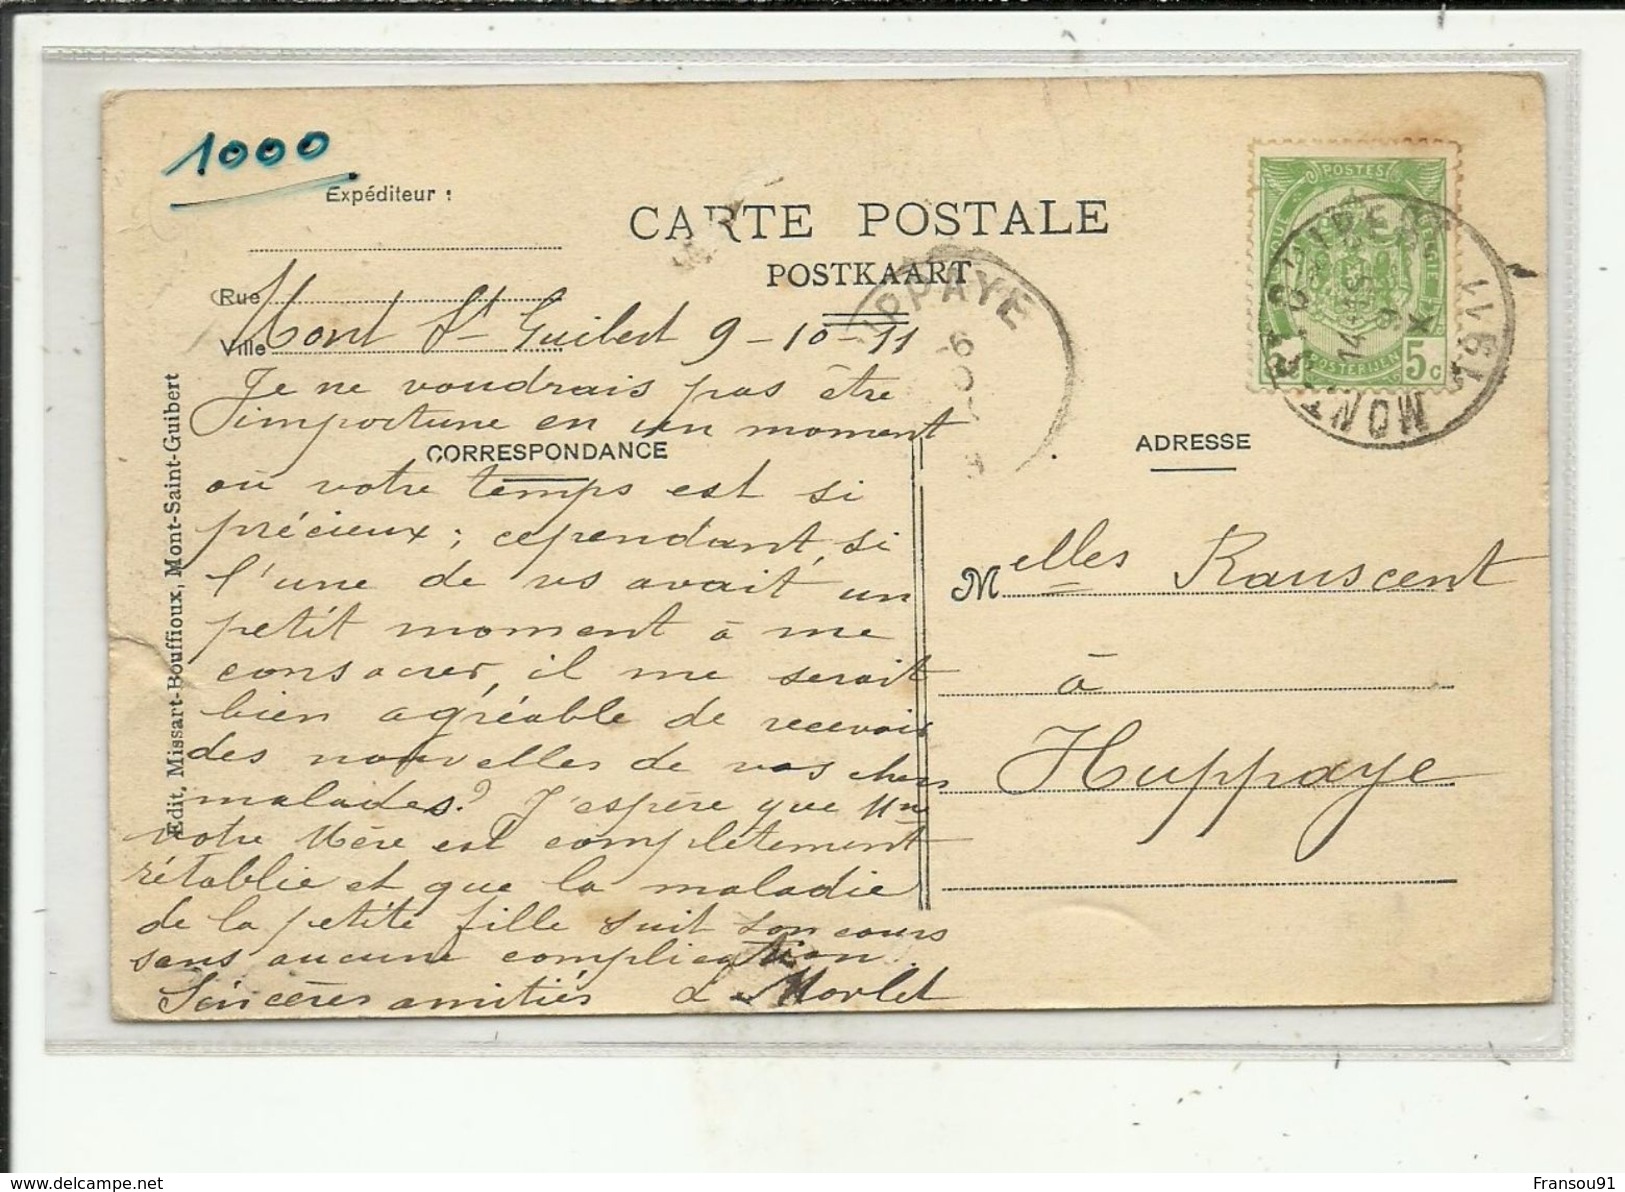 1000
Expéditeur :
CARTE POSTALE
POSTKAART
Rue
Ville
Mont St Guibert 9-10-11
Je ne voudrais pas être
importune en un moment
CORRESPONDANCE
où votre temps est si
précieux; cependant, si
l'une de vs avait un
petit moment à me
consacrer, il me serait
bien agréable de recevoir
des nouvelles de vos chers
malades? J'espère que Me
votre Mère est complètement
rétablie et que la maladie
de la petite fille suit son cours
sans aucune complication.
Sincères amitiés L Morlet
Edit, Missart-Bouffioux, Mont-Saint-Guibert
ADRESSE
Melles Rauscent
à
Huppaye
POSTES
POSTERIJEN
5c
MONT-ST-GUIBERT
14-15
9 X
1911
IPPAYE
Fransou91
www.delcampe.net